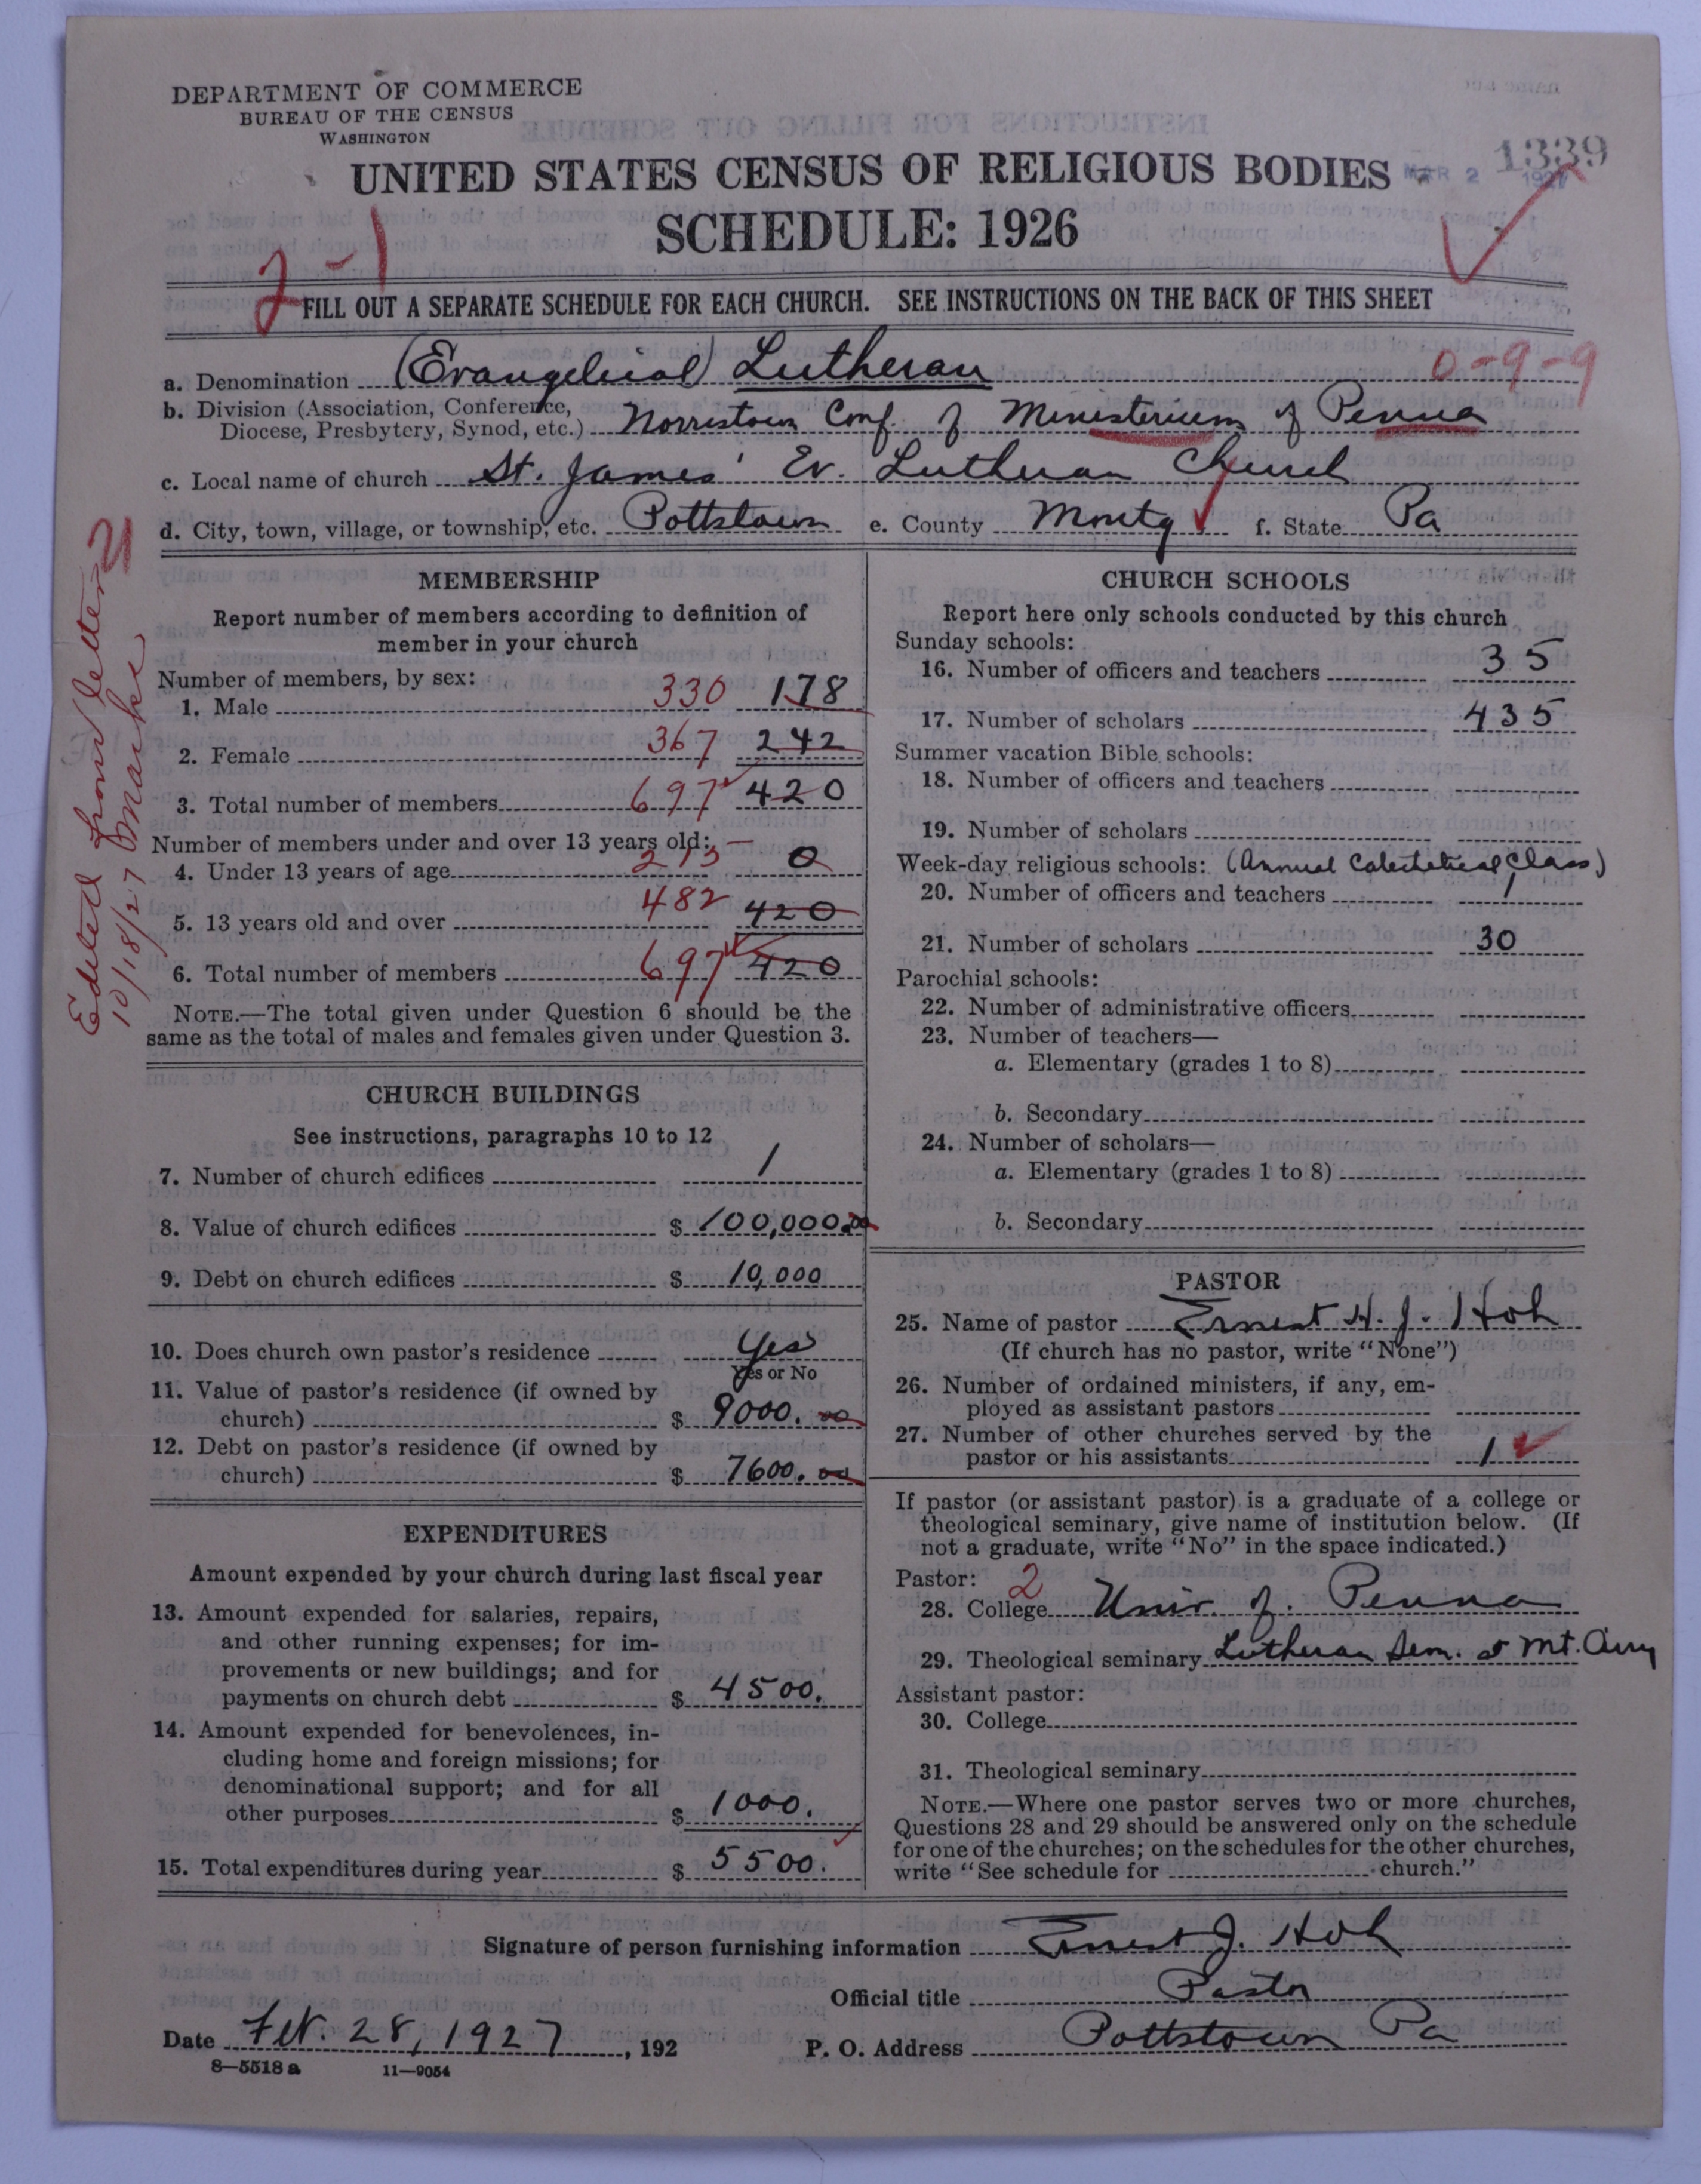 DEPARTMENT OF COMMERCE
BUREAU OF THE CENSUS
WASHINGTON
1339
MAR 2 1927
UNITED STATES CENSUS OF RELIGIOUS BODIES
SCHEDULE: 1926
2-1
FILL OUT A SEPARATE SCHEDULE FOR EACH CHURCH. SEE INSTRUCTIONS ON THE BACK OF THIS SHEET
a. Denomination (Evangelical) Lutheran 0-9-9
b. Division (Association, Conference, Diocese, Presbytery, Synod, etc.) Norristown Conf. of Ministerium of Penna
c. Local name of church St. James' Ev. Lutheran Church
d. City, town, village, or township, etc. Pottstown e. County Montg f. State Pa
Edited from letter
10/18/27
MEMBERSHIP
Report number of members according to definition of
member in your church
Number of members, by sex:
1. Male 330 178
2. Female 367 242
3. Total number of members 697 420
Number of members under and over 13 years old:
4. Under 13 years of age 215 0
5. 13 years old and over 482 420
6. Total number of members 697 420
NOTE.—The total given under Question 6 should be the
same as the total of males and females given under Question 3.
CHURCH BUILDINGS
See instructions, paragraphs 10 to 12
7. Number of church edifices 1
8. Value of church edifices $ 100,000.00
9. Debt on church edifices $ 10,000
10. Does church own pastor's residence Yes
Yes or No
11. Value of pastor's residence (if owned by
church) $ 9000. 00
12. Debt on pastor's residence (if owned by
church) $ 7600. 00
EXPENDITURES
Amount expended by your church during last fiscal year
13. Amount expended for salaries, repairs,
and other running expenses; for im-
provements or new buildings; and for
payments on church debt $ 4500.
14. Amount expended for benevolences, in-
cluding home and foreign missions; for
denominational support; and for all
other purposes $ 1000.
15. Total expenditures during year $ 5500.
CHURCH SCHOOLS
Report here only schools conducted by this church
Sunday schools:
16. Number of officers and teachers 35
17. Number of scholars 435
Summer vacation Bible schools:
18. Number of officers and teachers
19. Number of scholars
Week-day religious schools: (Annual Catechetical Class)
20. Number of officers and teachers 1
21. Number of scholars 30
Parochial schools:
22. Number of administrative officers
23. Number of teachers—
a. Elementary (grades 1 to 8)
b. Secondary
24. Number of scholars—
a. Elementary (grades 1 to 8)
b. Secondary
PASTOR
25. Name of pastor Ernest H. J. Hoh
(If church has no pastor, write "None")
26. Number of ordained ministers, if any, em-
ployed as assistant pastors
27. Number of other churches served by the
pastor or his assistants 1
If pastor (or assistant pastor) is a graduate of a college or
theological seminary, give name of institution below. (If
not a graduate, write "No" in the space indicated.)
Pastor: 2
28. College Univ. of. Penna
29. Theological seminary Lutheran Sem. at Mt. Airy
Assistant pastor:
30. College
31. Theological seminary
NOTE.—Where one pastor serves two or more churches,
Questions 28 and 29 should be answered only on the schedule
for one of the churches; on the schedules for the other churches,
write "See schedule for church."
Signature of person furnishing information Ernest J. Hoh
Official title Pastor
Date Feb. 28, 1927, 192 P. O. Address Pottstown Pa
8—5518 a 11—9054